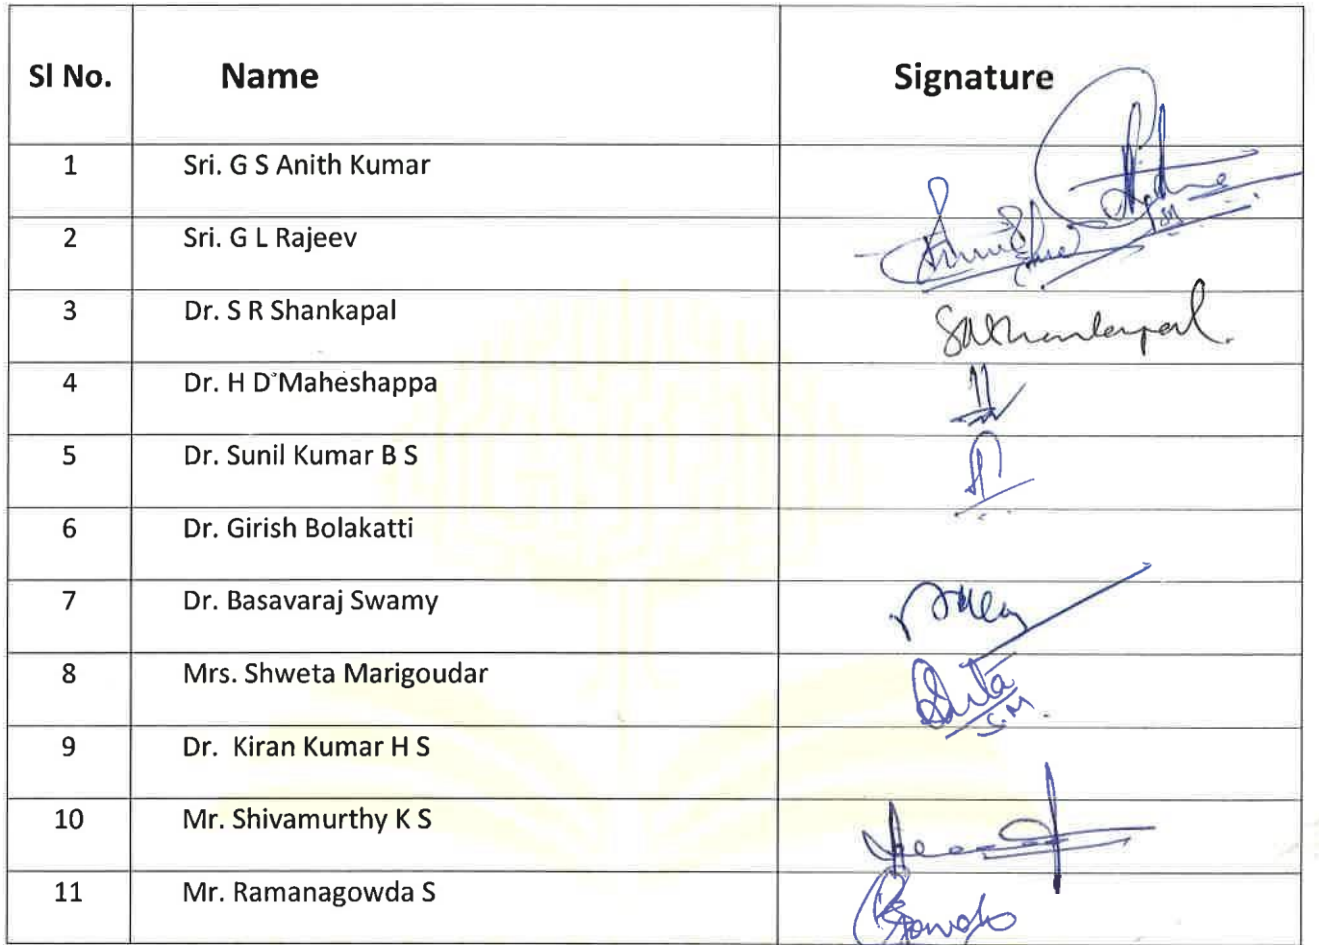 Sl No. Name Signature
1 Sri. G S Anith Kumar
2 Sri. G L Rajeev
3 Dr. S R Shankapal SRShankapal.
4 Dr. H D Maheshappa
5 Dr. Sunil Kumar B S
6 Dr. Girish Bolakatti
7 Dr. Basavaraj Swamy
8 Mrs. Shweta Marigoudar
S.M.
9 Dr. Kiran Kumar H S
10 Mr. Shivamurthy K S
11 Mr. Ramanagowda S